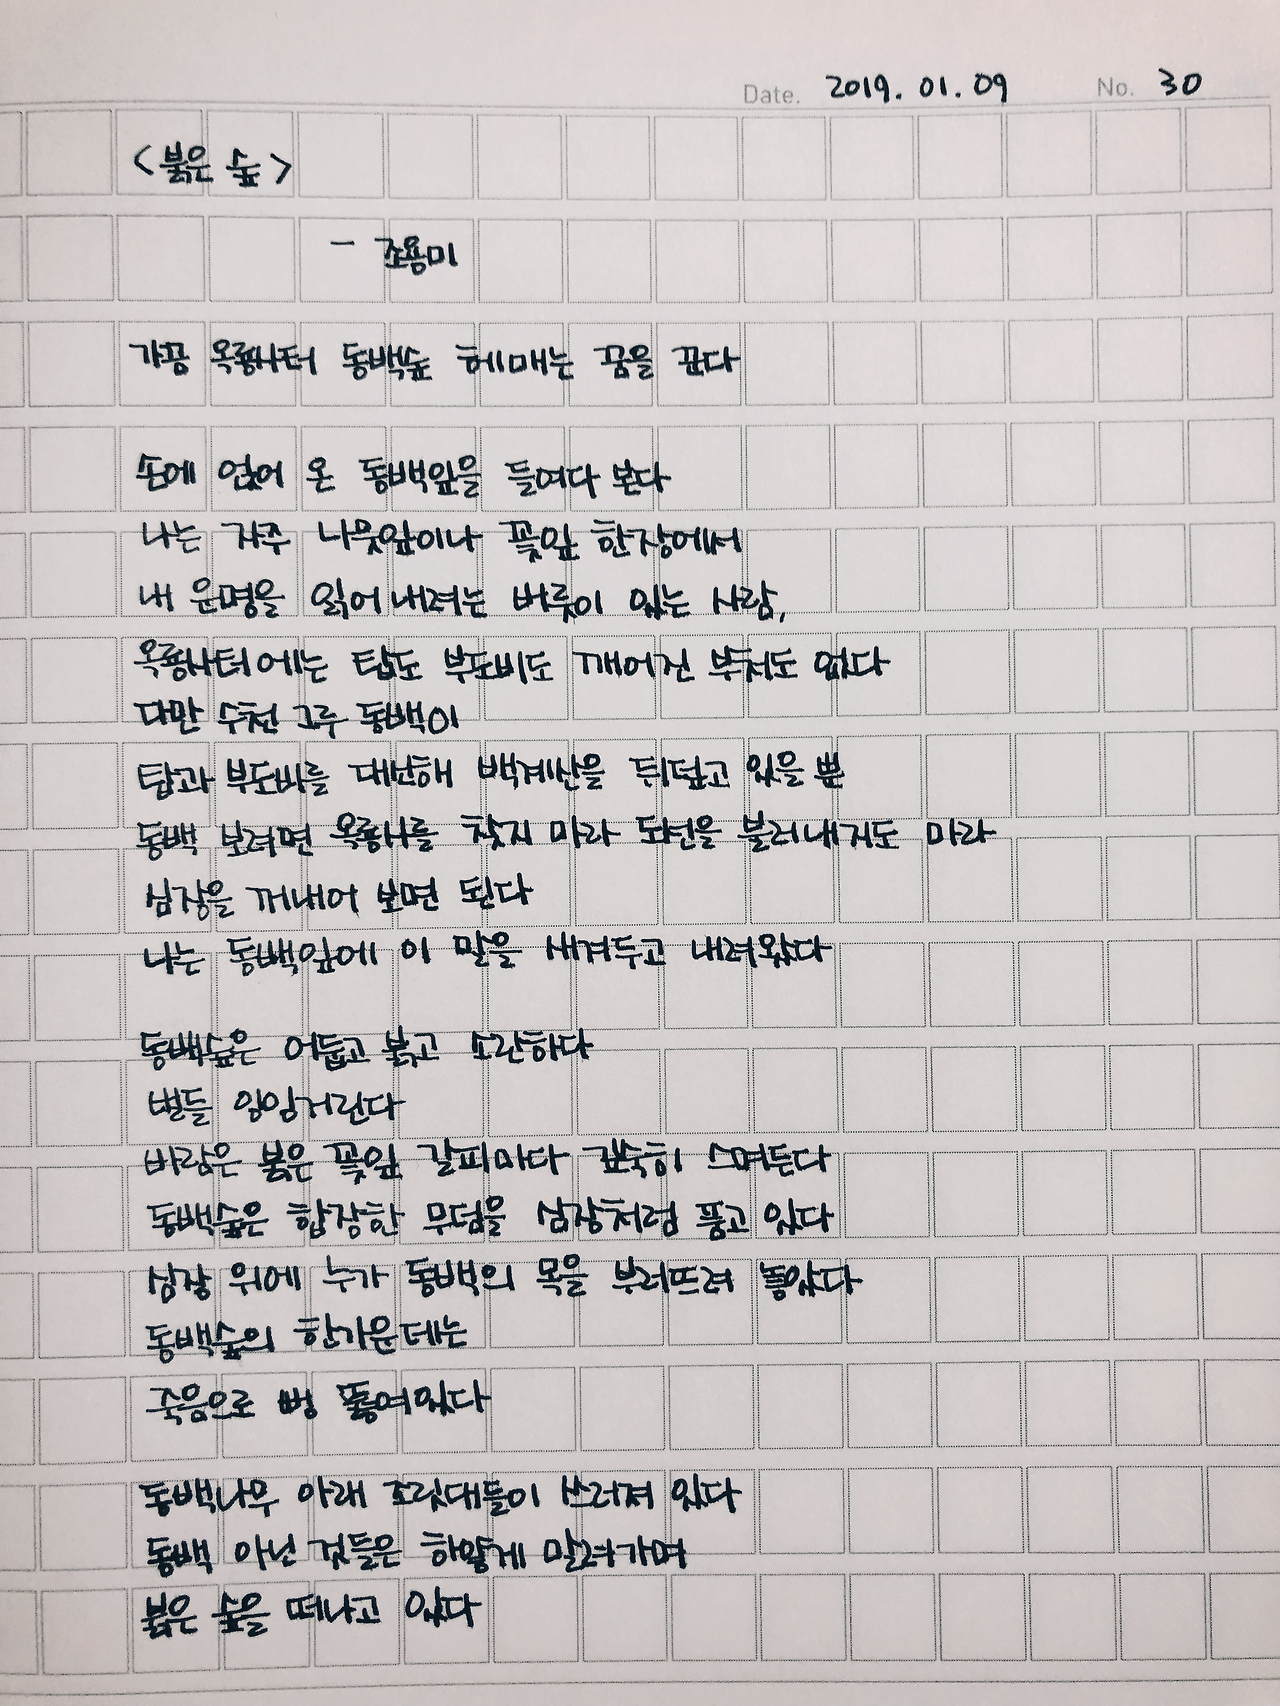 Date. 2019. 01. 09 No. 30
<붉은 숲>
- 조용미
가끔 옥룡사터 동백숲 헤매는 꿈을 꾼다
손에 얹어 온 동백잎을 들여다 본다
나는 자주 나뭇잎이나 꽃잎 한장에서
내 운명을 읽어내려는 버릇이 있는 사람,
옥룡사터에는 탑도 부도비도 깨어진 부처도 없다
다만 수천 그루 동백이
탑과 부도비를 대신해 백계산을 뒤덮고 있을 뿐
동백 보려면 옥룡사를 찾지 마라 도선을 불러내지도 마라
심장을 꺼내어 보면 된다
나는 동백잎에 이 말을 새겨두고 내려왔다
동백숲은 어둡고 붉고 소란하다
벌들 잉잉거린다
바람은 붉은 꽃잎 갈피마다 깊숙히 스며든다
동백숲은 합장한 무덤을 심장처럼 품고 있다
심장 위에 누가 동백의 목을 부러뜨려 놓았다
동백숲의 한가운데는
죽음으로 뻥 뚫여있다
동백나무 아래 조릿대들이 쓰러져 있다
동백 아닌 것들은 하얗게 말려가며
붉은 숲을 떠나고 있다